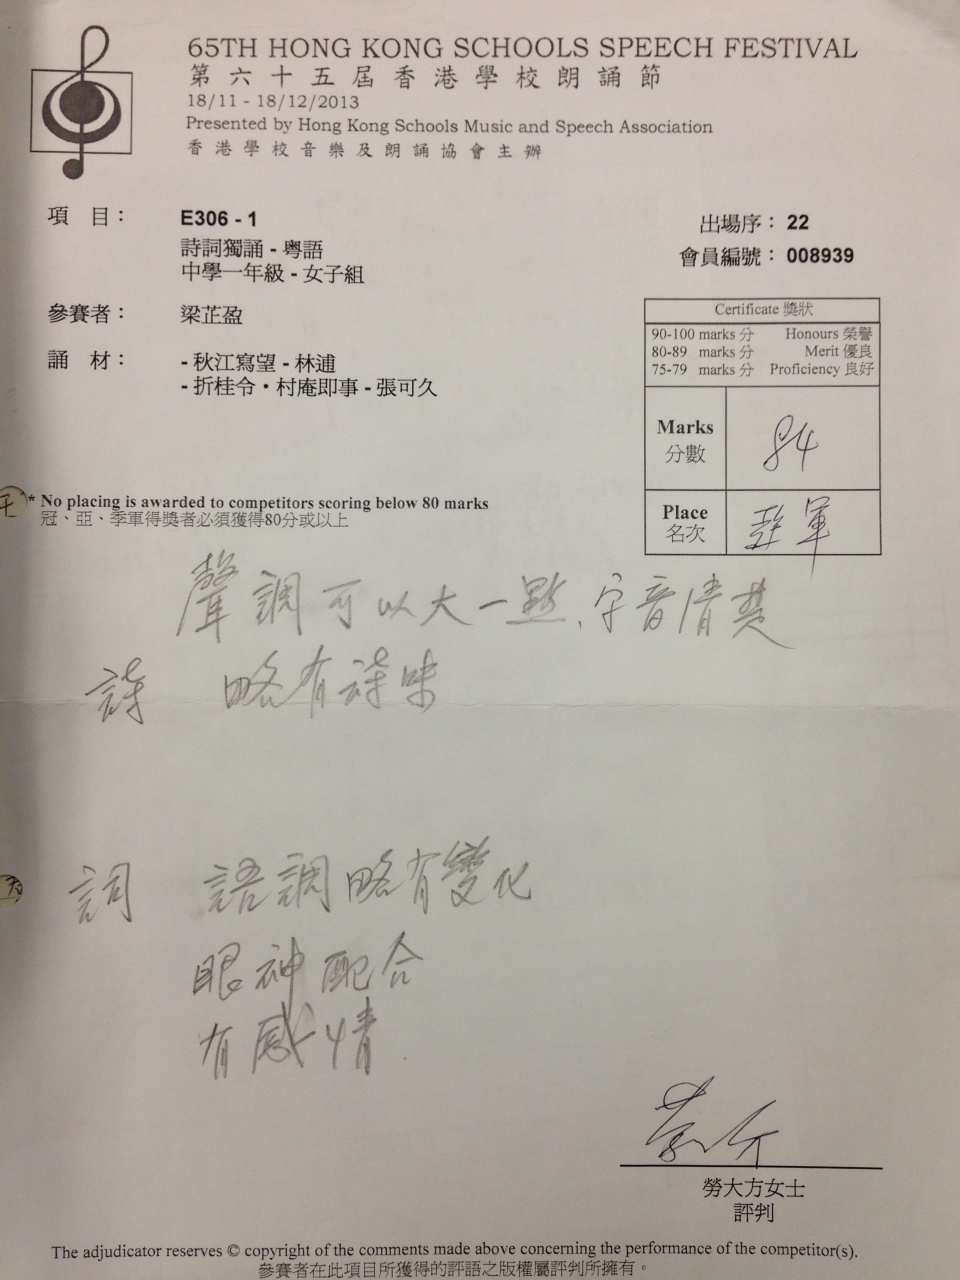 65TH HONG KONG SCHOOLS SPEECH FESTIVAL
第六十五屆香港學校朗誦節
18/11 - 18/12/2013
Presented by Hong Kong Schools Music and Speech Association
香港學校音樂及朗誦協會主辦
項 目： E306 - 1
出場序： 22
詩詞獨誦 - 粵語
會員編號： 008939
中學一年級 - 女子組
參賽者： 梁芷盈
Certificate 獎狀
90-100 marks 分 Honours 榮譽
80-89 marks 分 Merit 優良
75-79 marks 分 Proficiency 良好
誦 材： - 秋江寫望 - 林逋
- 折桂令・村庵即事 - 張可久
Marks 84
分數
* No placing is awarded to competitors scoring below 80 marks
冠、亞、季軍得獎者必須獲得80分或以上
Place 軍
名次
聲調可以大一點、字音清楚
詩 略有詩味
詞 語調略有變化
眼神配合
有感情.
勞大方女士
評判
The adjudicator reserves © copyright of the comments made above concerning the performance of the competitor(s).
參賽者在此項目所獲得的評語之版權屬評判所擁有。